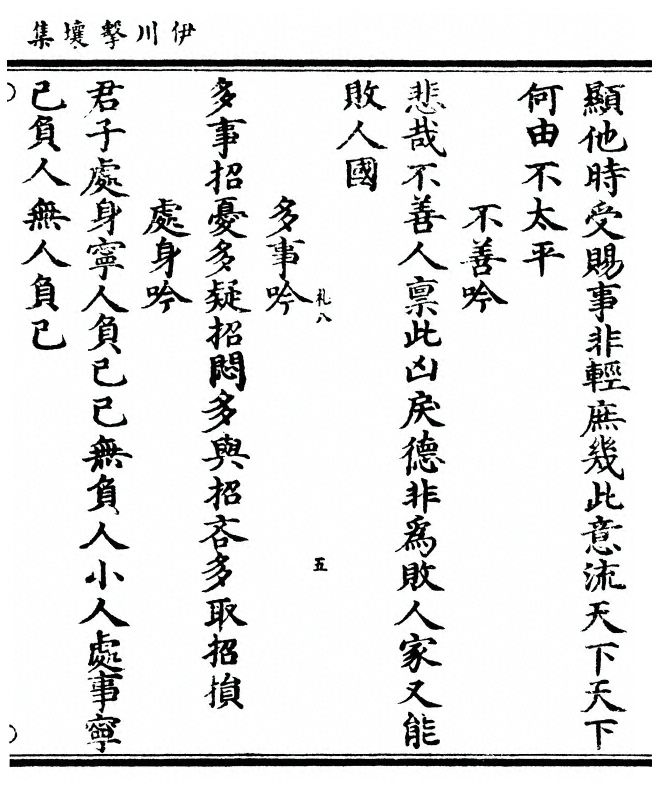 伊川擊壤集
顯他時受賜事非輕庶幾此意流天下天下
何由不太平
不善吟
悲哉不善人稟此凶戾德非爲敗人家又能
敗人國
札八
五
多事吟
多事招憂多疑招悶多與招吝多取招損
處身吟
君子處身寧人負己己無負人小人處事寧
己負人無人負己